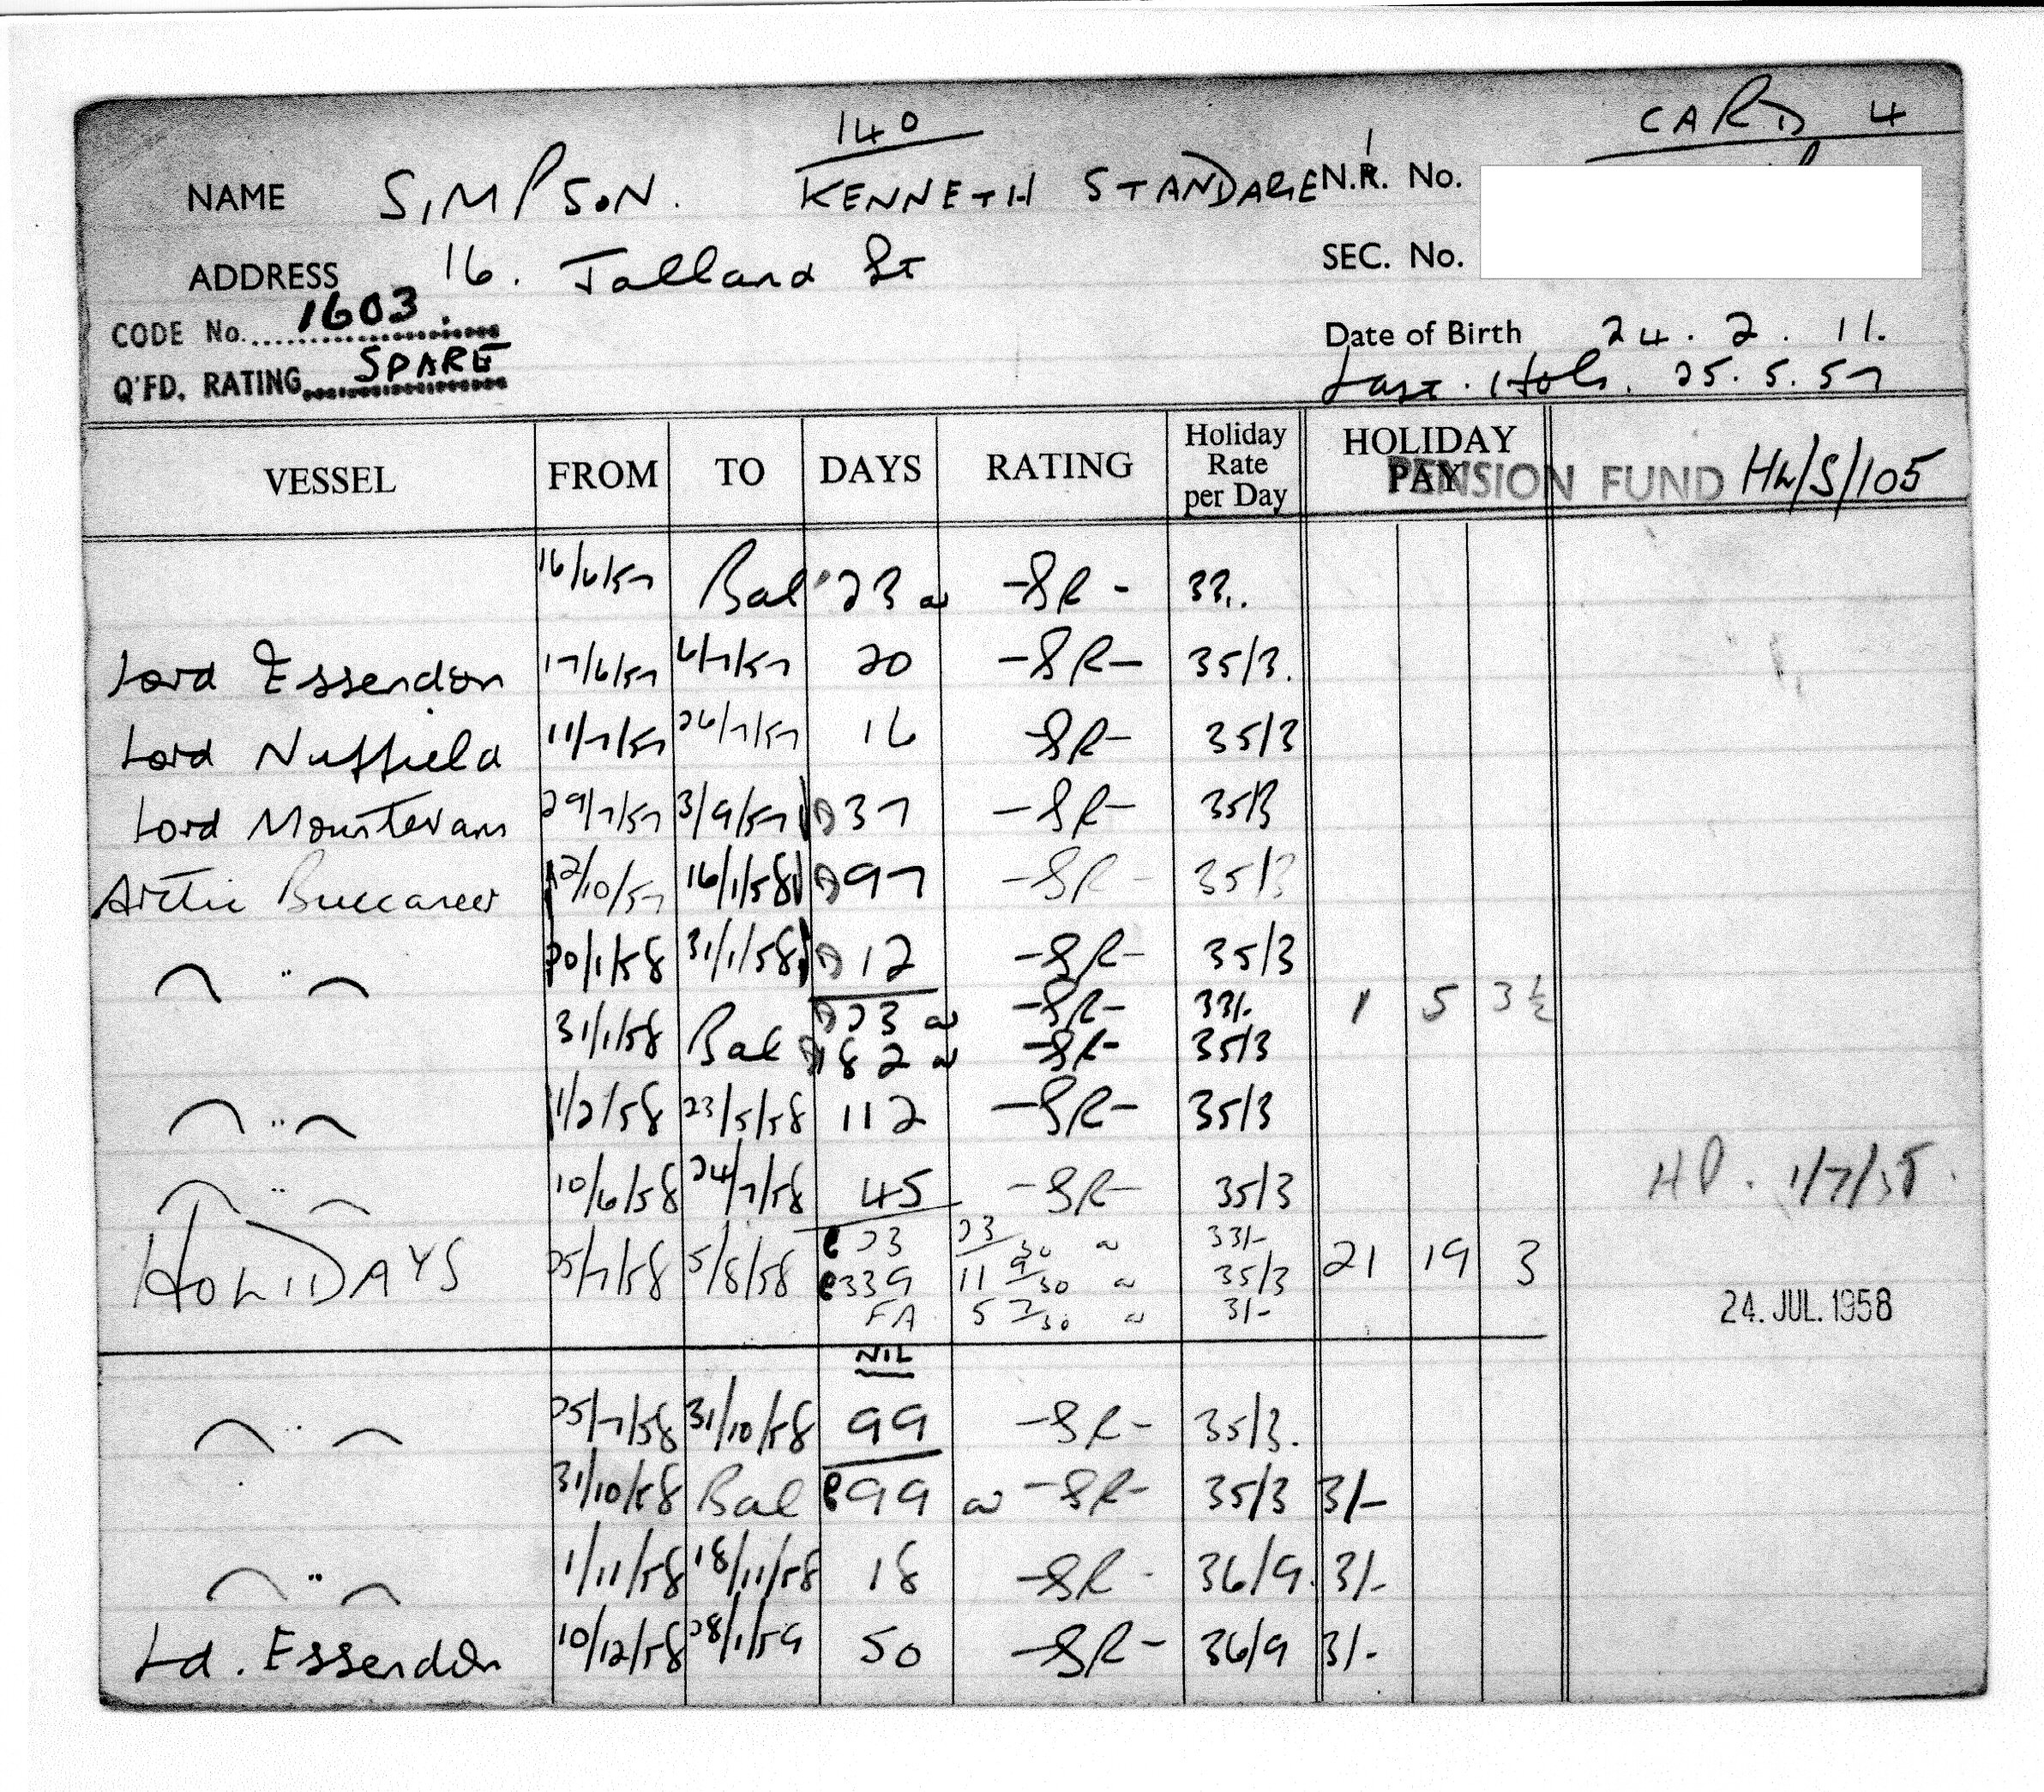 140
CARD 4
NAME SIMPSON. KENNETH STANDAGE N.R. No.
ADDRESS 16. Jalland St SEC. No.
CODE No. 1603.
Date of Birth 24.2.11.
Q'FD. RATING SPARE
Last. Hols. 25.5.57
VESSEL FROM TO DAYS RATING Holiday Rate per Day HOLIDAY PAY PENSION FUND HL/S/105
16/6/57 Bal 23 a -SR- 33/.
Lord Essendon 17/6/57 6/7/57 20 -SR- 35/3.
Lord Nuffield 11/7/57 26/7/57 16 -SR- 35/3
Lord Mountevans 29/7/57 3/9/57 37 -SR- 35/3
Arctic Buccaneer 12/10/57 16/1/58 97 -SR- 35/3
" 20/1/58 31/1/58 12 -SR- 35/3
23 a -SR- 33/- 1 5 3½
31/1/58 Bal 182 a -SR- 35/3
" 1/2/58 23/5/58 112 -SR- 35/3
" 10/6/58 24/7/58 45 -SR- 35/3 HP. 1/7/58.
HOLIDAYS 25/7/58 5/8/58 23 23/30 a 33/- 21 19 3
339 11 9/30 a 35/3
FA 5 2/30 a 3/- 24. JUL. 1958
NIL
" 25/7/58 31/10/58 99 -SR- 35/3.
31/10/58 Bal 99 a -SR- 35/3 3/-
" 1/11/58 18/11/58 18 -SR- 36/9. 3/-
Ld. Essendon 10/12/58 28/1/59 50 -SR- 36/9 3/-